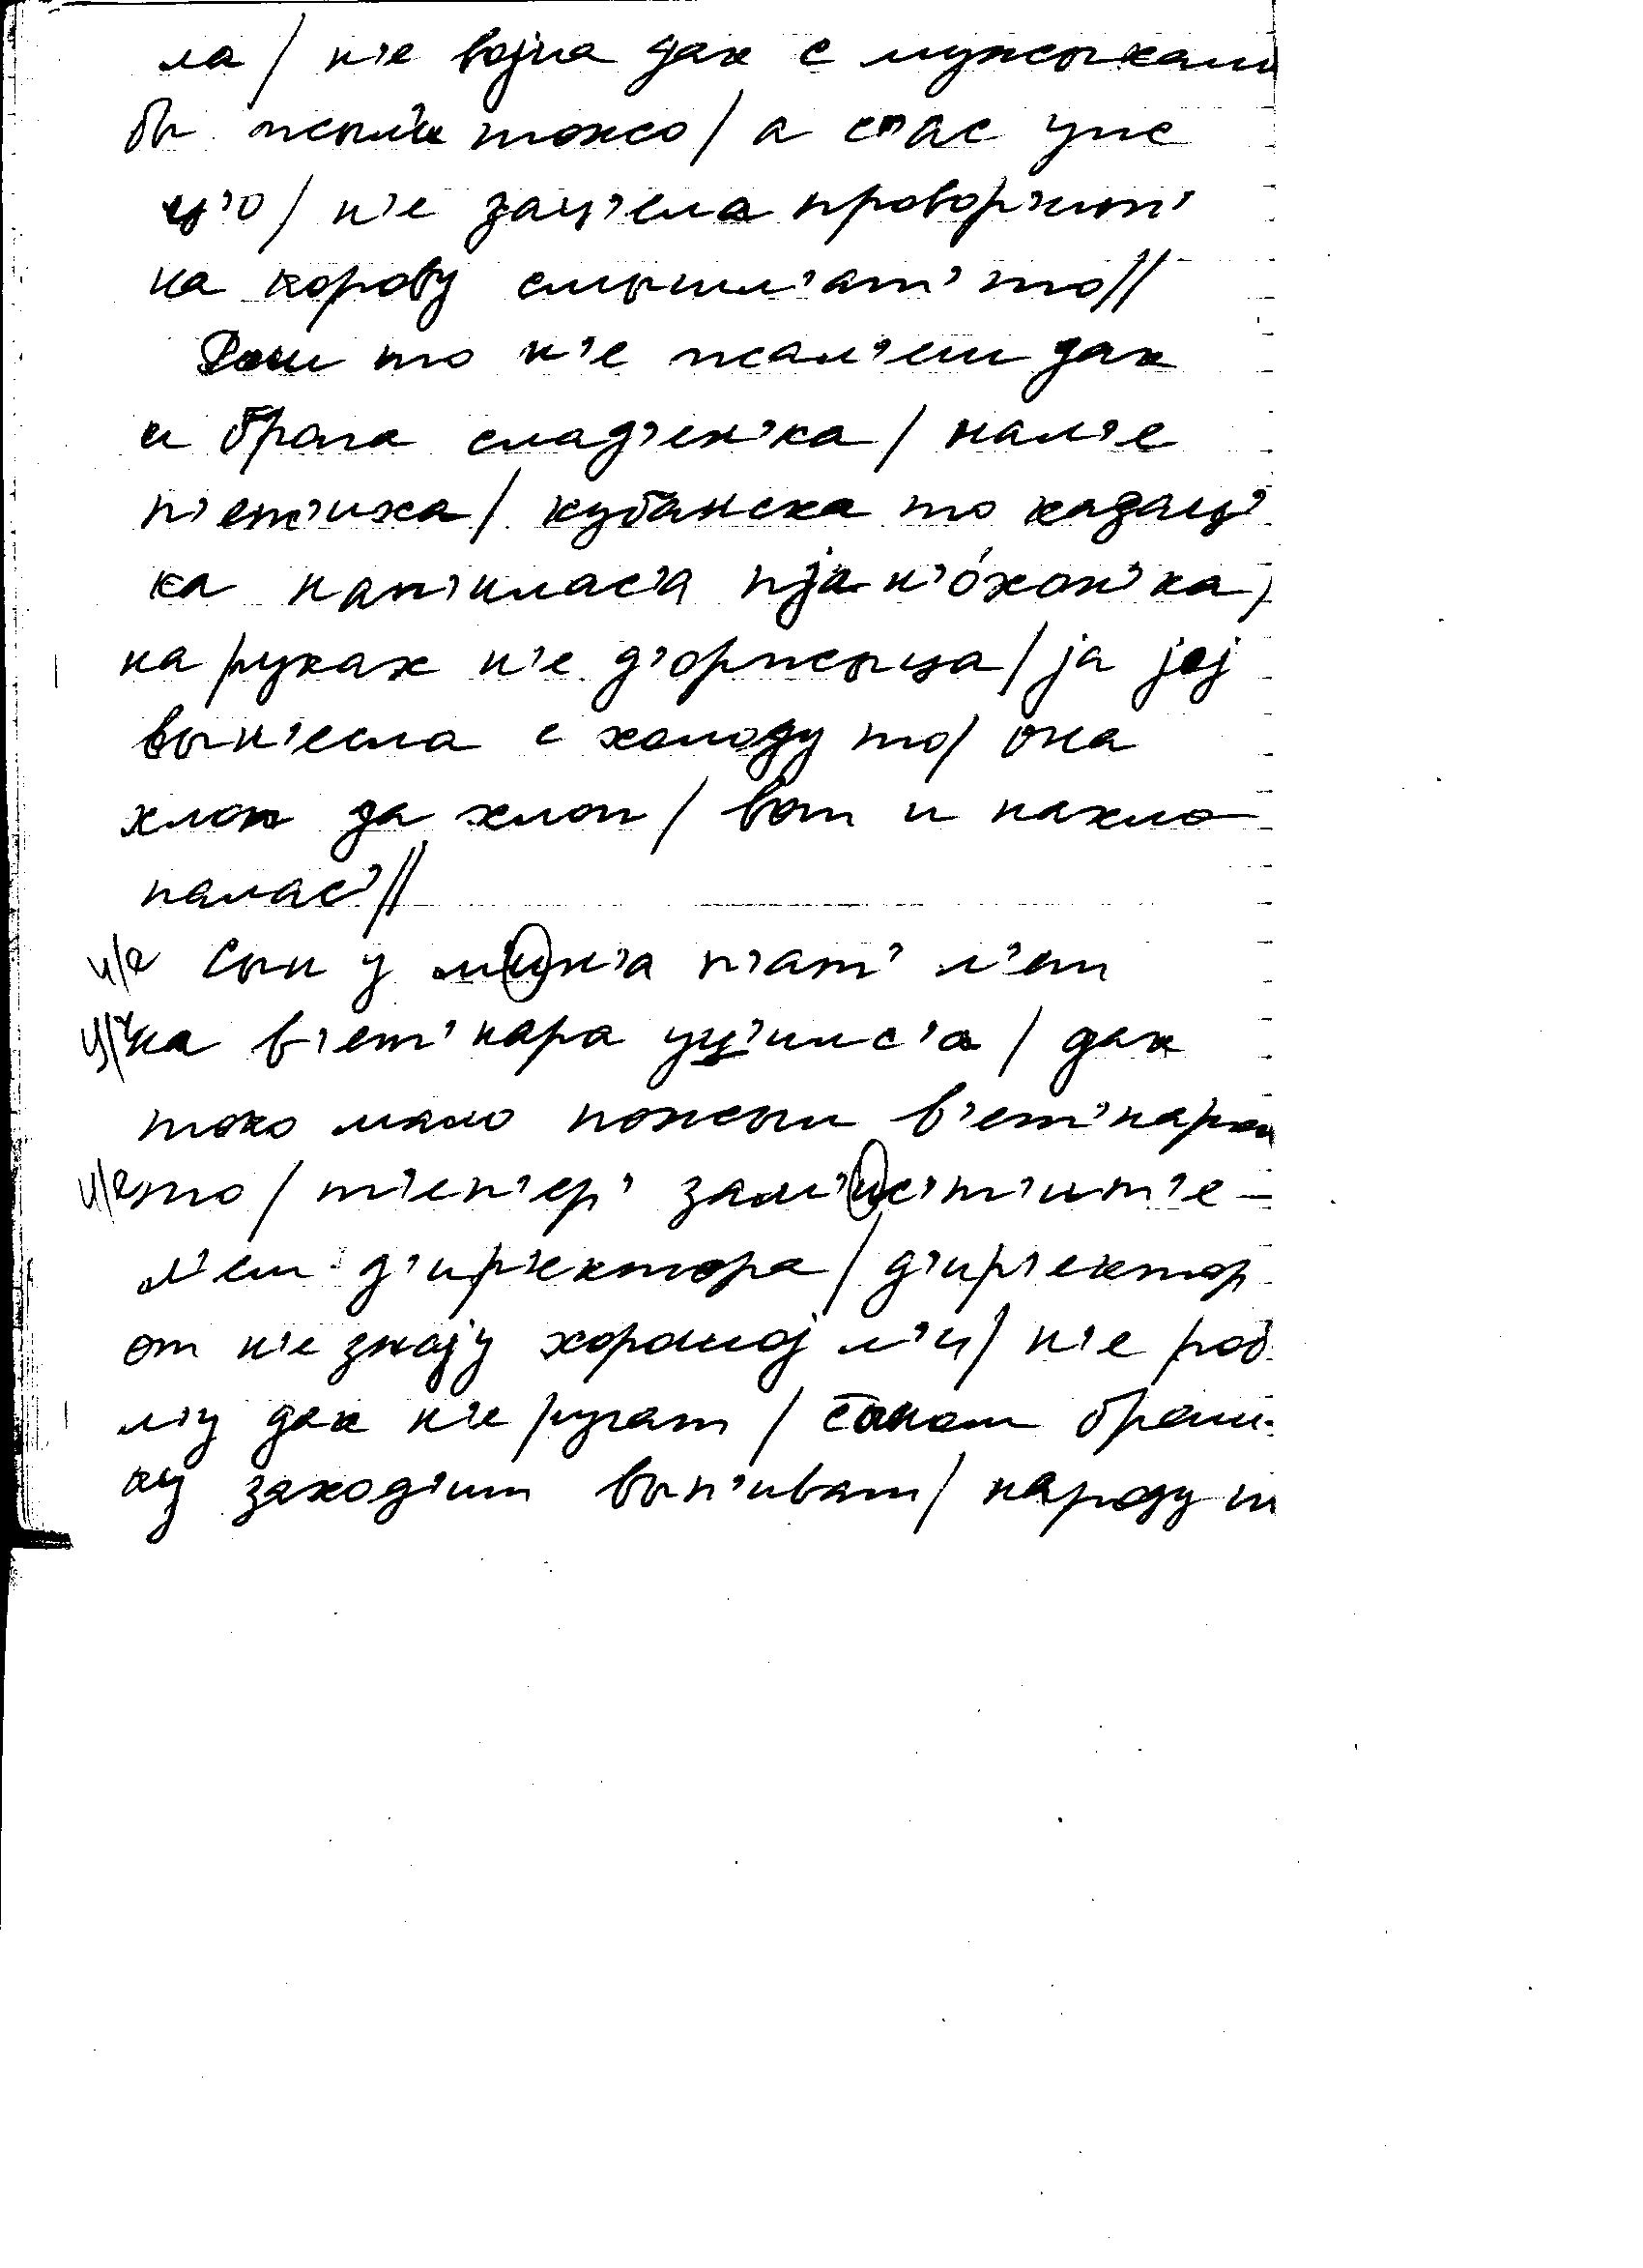 ла / н'е војна дак с мужыками
бы жыли тожо / а с'ас уже
ц'о / н'е зац'ема проворжит'
на корову смышл'ат' то //
Рош то н'е жал'еш дак
и брага слад'ен'ка / нал'е
п'ет'иха / кубанска то кадац'
ка нап'илас'а пја н'о́хон'ка /
на руках н'е д'оржыца / ја јеј
вын'есла с холоду то / она
хлоп да хлоп / вот и нахло
палас' //
и/е Сын у м'ин'а п'ат' л'ет
ц/ч на в'ет'нара уц'илс'а / дак
токо мало пожыл в'ет'наром
и/е то / т'еп'ер' зам'ис'т'ит'е -
л'ем д'ир'ектора / д'ир'ектор
от н'е знају хорошој л'и / н'е роб
л'у дак н'е ругат / браш-
ку заход'ит вып'иват / народу ш